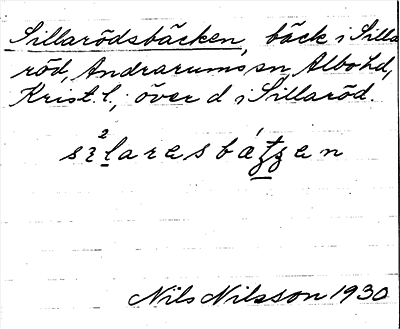 Sillarödsbäcken, bäck i Silla
röd, Andrarums sn, Albo hd,
Krist. l., över d i Sillaröd.
Nils Nilsson 1930